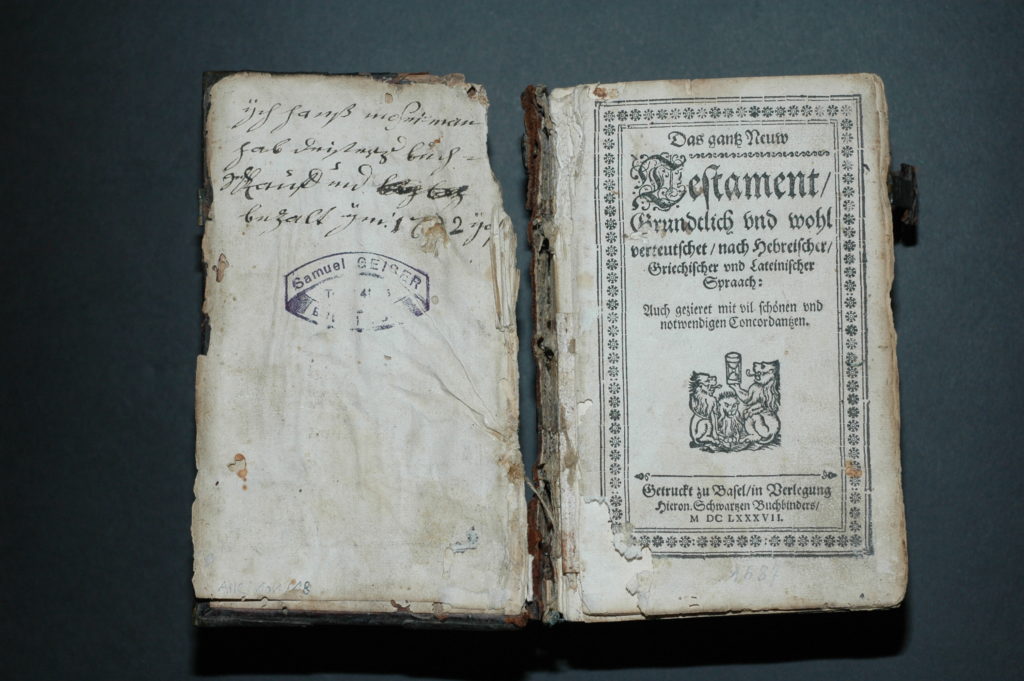 ÿch hanß
hab buch
kauft und
bezalt ÿm 17 2
Samuel GEISER
Das gantz Neuw
Testament/
Gründtlich vnd wohl
verteutschet/nach Hebreischer/
Griechischer vnd Lateinischer
Spraach:
Auch gezieret mit vil schönen vnd
notwendigen Concordantzen.
Getruckt zu Basel/in Verlegung
Hieron. Schwartzen Buchbinders/
M DC LXXXVII.
1687